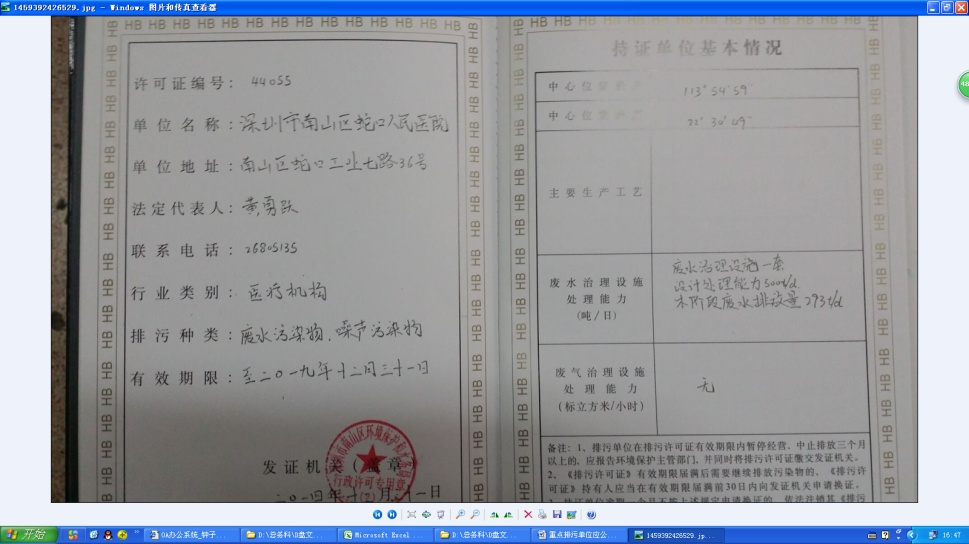 1459392426529.jpg - Windows 图片和传真查看器
许可证编号: 44055
单位名称: 深圳市南山区蛇口人民医院
单位地址: 南山区蛇口工业七路36号
法定代表人: 黄勇跃
联系电话: 26805135
行业类别: 医疗机构
排污种类: 废水污染物、噪声污染物
有效期限: 至二〇一九年十二月三十一日
发证机关(盖章
行政许可专用章
(2)
持证单位基本情况
中心位置 113°54'59"
中心位置
主要生产工艺
废水治理设施
处理能力
(吨/日)
废水治理设施一套
设计处理能力500t/d
本阶段废水排放量293t/d
废气治理设施
处理能力
(标立方米/小时)
无
备注: 1、排污单位在排污许可证有效期限内暂停经营、中止排放三个月
以上的, 应报告环境保护主管部门, 并同时将排污许可证缴交发证机关。
2、《排污许可证》有效期限届满后需要继续排放污染物的, 《排污许
可证》持有人应当在有效期限届满前30日内向发证机关申请换证。
开始
OA办公系统_钟子...
D:\总务科\D盘文...
Microsoft Excel ...
D:\总务科\D盘文...
重点排污单位应公...
1459392426529.jp...
16:47